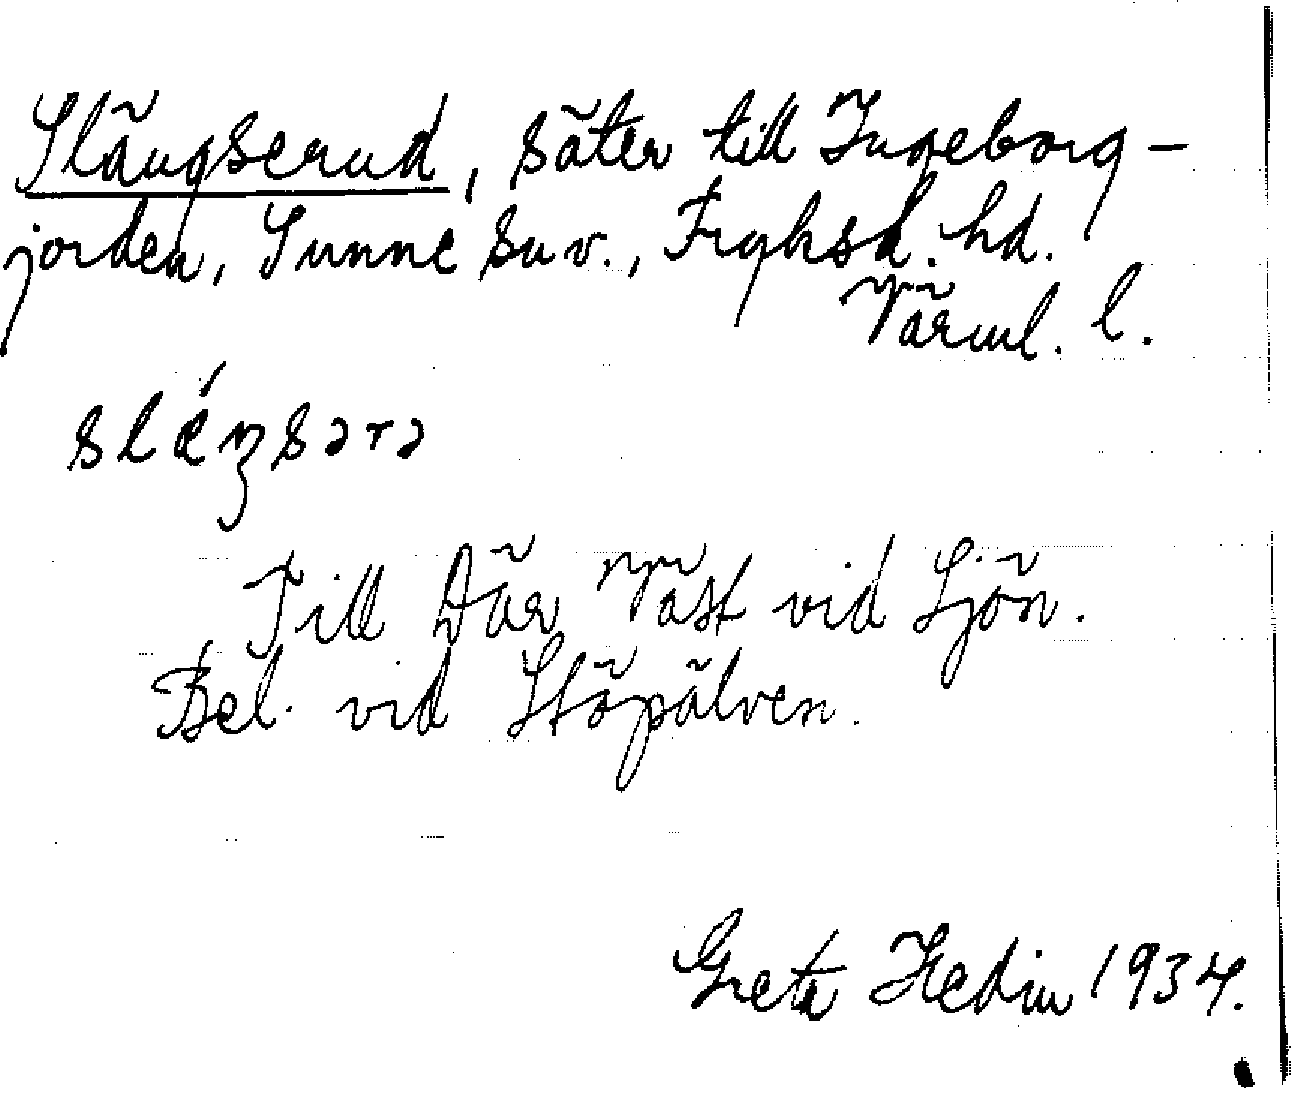 Slängserud, säter till Ingeborg-
jorden, Sunne snv., Fryksd. hd.
Värml. l.
slǽŋsərə
Till Där Väst vid Sjön.
Bel. vid Stöpälven.
Greta Hedin 1934.